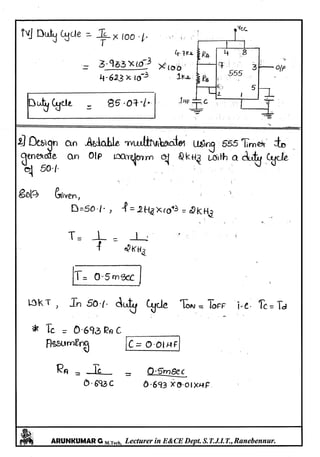 iv] Duty Cycle = Tc/T × 100 %
= 3.933×10⁻³ / 4.623×10⁻³ × 100
Duty Cycle = 85.07 %
Vcc
4.7KΩ RA
1KΩ RB
1µF C
4 8
7 3 O/P
555
6 5
2 1
2] Design an Astable multivibrator using 555 Timer to
generate an O/P waveform of 2KHz with a duty cycle
of 50%
Solⁿ Given,
D=50%, f = 2Hz×10⁺³ = 2KHz
T = 1/f = 1/2KHz
T = 0.5msec
WKT, In 50% duty Cycle TON = TOFF i.e. Tc = Td
* Tc = 0.693 RA C
Assuming C = 0.01µF
RA = Tc / 0.693 C = 0.5msec / 0.693 × 0.01×µF
ARUNKUMAR G M.Tech, Lecturer in E&CE Dept. S.T.J.I.T., Ranebennur.